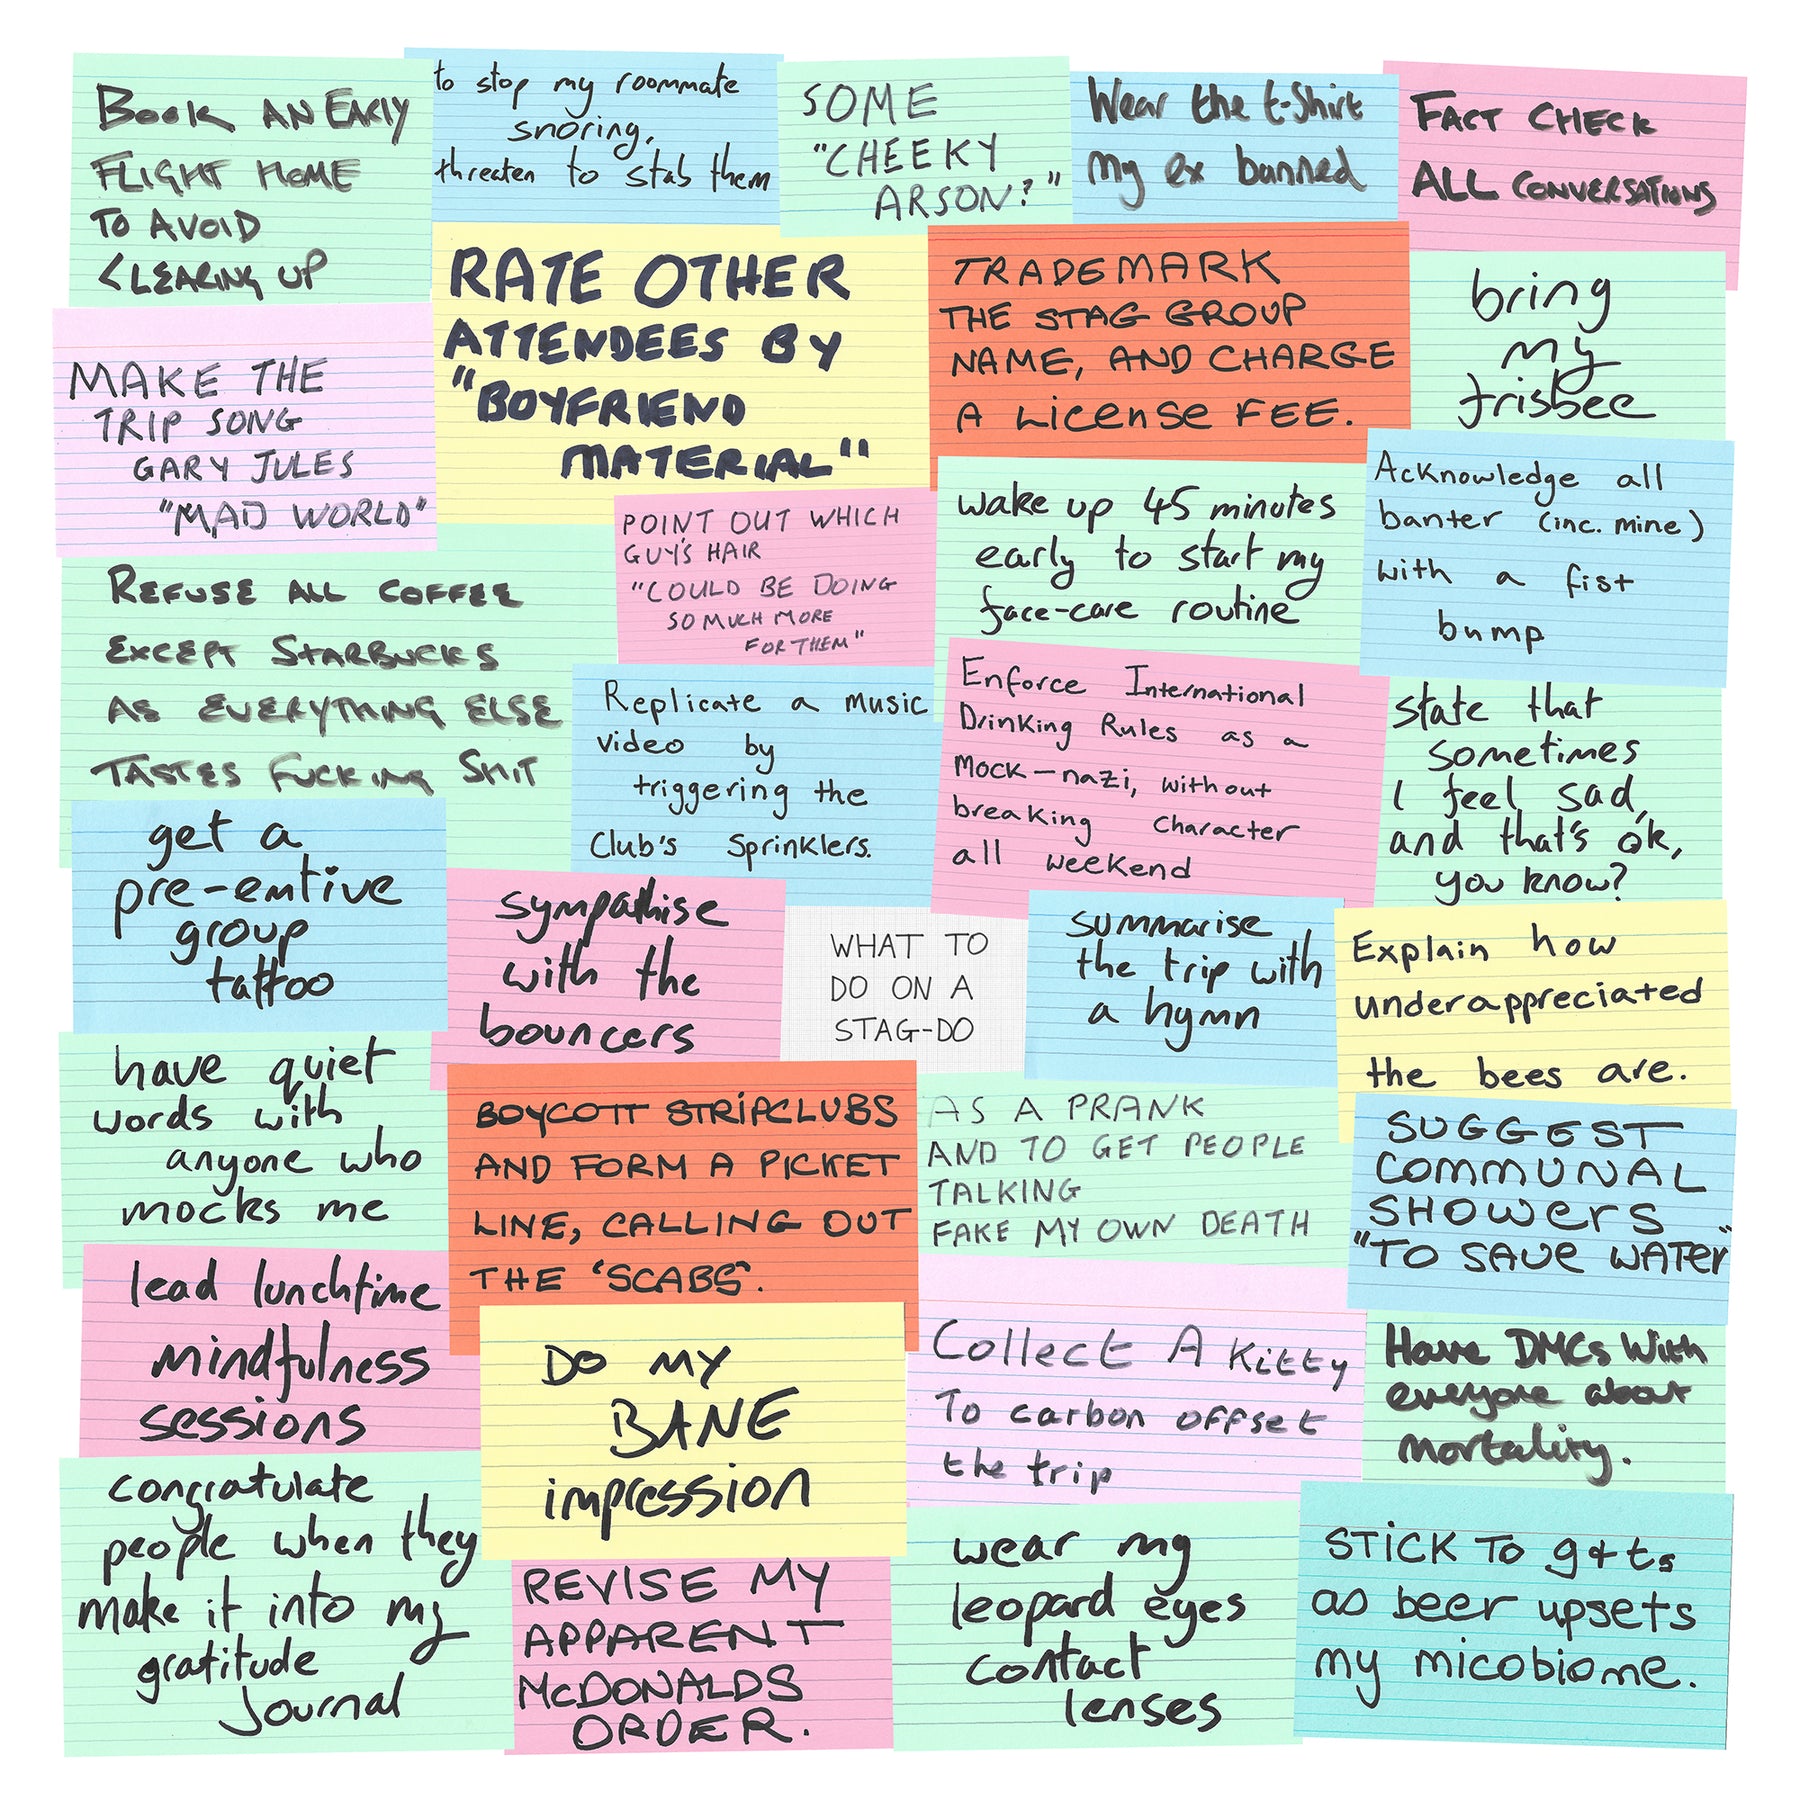 BOOK AN EARLY
FLIGHT HOME
TO AVOID
CLEARING UP
to stop my roommate
snoring,
threaten to stab them
SOME
"CHEEKY
ARSON?"
Wear the t-shirt
my ex banned
FACT CHECK
ALL CONVERSATIONS
MAKE THE
TRIP SONG
GARY JULES
"MAD WORLD"
RATE OTHER
ATTENDEES BY
"BOYFRIEND
MATERIAL"
TRADEMARK
THE STAG GROUP
NAME, AND CHARGE
A LICENSE FEE.
bring
my
frisbee
POINT OUT WHICH
GUY'S HAIR
"COULD BE DOING
SO MUCH MORE
FOR THEM"
wake up 45 minutes
early to start my
face-care routine
Acknowledge all
banter (inc. mine)
with a fist
bump
REFUSE ALL COFFEE
EXCEPT STARBUCKS
AS EVERYTHING ELSE
TASTES FUCKING SHIT
Replicate a music
video by
triggering the
Club's Sprinklers.
Enforce International
Drinking Rules as a
Mock-nazi, without
breaking character
all weekend
state that
sometimes
I feel sad,
and that's ok,
you know?
get a
pre-emtive
group
tattoo
sympathise
with the
bouncers
WHAT TO
DO ON A
STAG-DO
summarise
the trip with
a hymn
Explain how
underappreciated
the bees are.
have quiet
words with
anyone who
mocks me
BOYCOTT STRIPCLUBS
AND FORM A PICKET
LINE, CALLING OUT
THE 'SCABS'.
AS A PRANK
AND TO GET PEOPLE
TALKING
FAKE MY OWN DEATH
SUGGEST
COMMUNAL
SHOWERS
"TO SAVE WATER"
lead lunchtime
mindfulness
sessions
DO MY
BANE
impression
Collect A Kitty
To carbon offset
the trip
Have DMCs With
everyone about
mortality.
congratulate
people when they
make it into my
gratitude
Journal
REVISE MY
APPARENT
McDONALDS
ORDER.
wear my
leopard eyes
contact
lenses
STICK TO g+ts
as beer upsets
my micobiome.